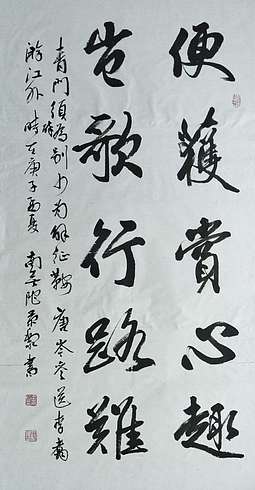 便獲賞心趣
豈歌行路難
青門須醉別少为解征鞍 唐岑參送李翥
游江外 時在庚子夏 南書